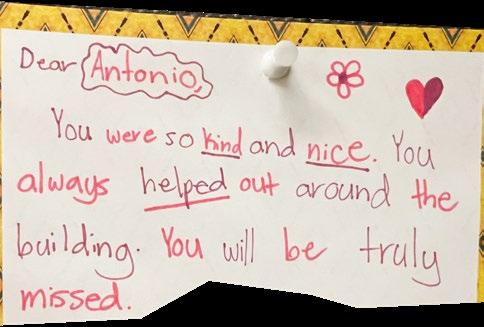 Dear Antonio,
You were so kind and nice. You
always helped out around the
building. You will be truly
missed.